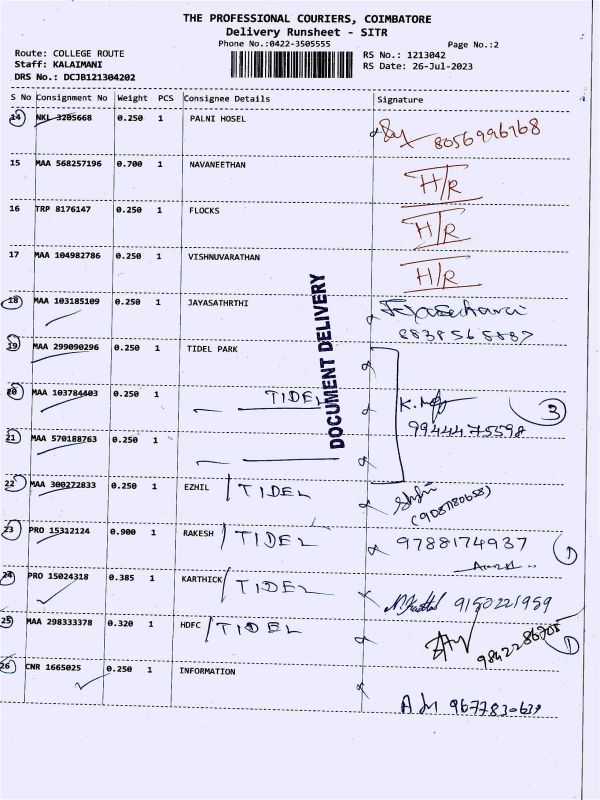 THE PROFESSIONAL COURIERS, COIMBATORE
Delivery Runsheet - SITR
Phone No.:0422-3505555 Page No.:2
Route: COLLEGE ROUTE RS No.: 1213042
Staff: KALAIMANI RS Date: 26-Jul-2023
DRS No.: DCJB121304202
S No Consignment No Weight PCS Consignee Details Signature
14 NKL 3205668 0.250 1 PALNI HOSEL 8056996768
15 MAA 568257196 0.700 1 NAVANEETHAN H/R
16 TRP 8176147 0.250 1 FLOCKS H/R
17 MAA 104982786 0.250 1 VISHNUVARATHAN H/R
18 MAA 103185109 0.250 1 JAYASATHRTHI
DOCUMENT DELIVERY
19 MAA 299090296 0.250 1 TIDEL PARK
20 MAA 103784403 0.250 1 TIDEL 3
21 MAA 570188763 0.250 1 9944475598
22 MAA 300272833 0.250 1 EZHIL / TIDEL
23 PRO 15312124 0.900 1 RAKESH / TIDEL 9788174937 1
24 PRO 15024318 0.385 1 KARTHICK / TIDEL 9150221959
25 MAA 298333378 0.320 1 HDFC / TIDEL 1
26 CNR 1665025 0.250 1 INFORMATION
9677830639